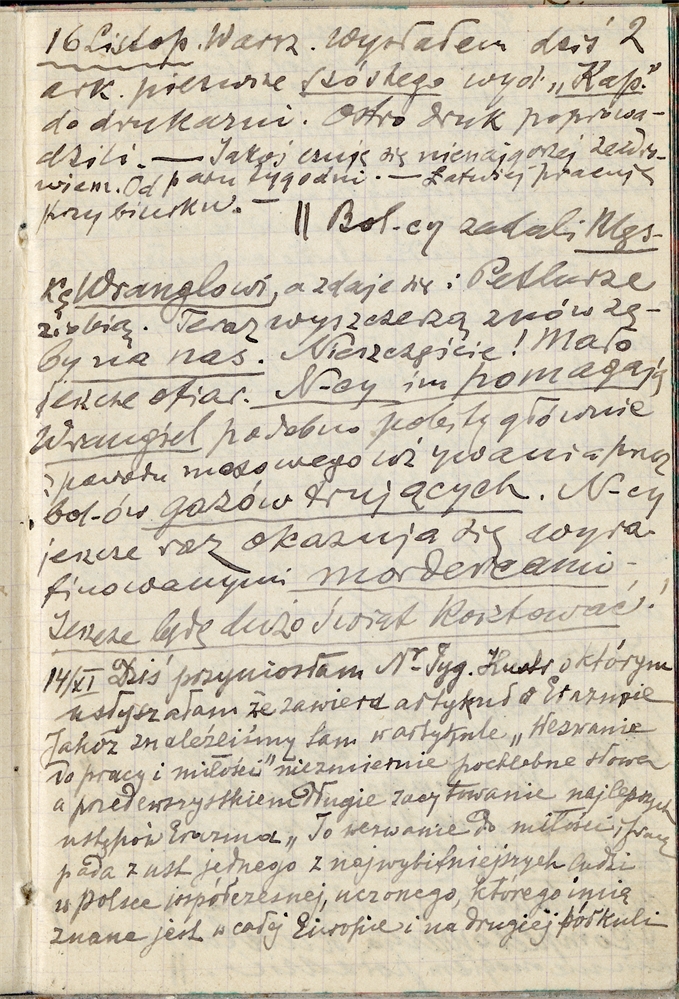 16 Listop. Warsz. Wysłałem dziś 2
ark. pierwsze szóstego wyd. „Kap."
do drukarni. Ostro druk poprowa-
dzili. — Jakoś czuję się nienajgorzej ze zdro-
wiem. Od paru tygodni. — Łatwiej pracuję
przy biurku. —
|| Bol-cy zadali klęs-
kę Wranglowi, a zdaje się i Petlurze
zrobią. Teraz wyszczerzą znów zę-
by na nas. Nieszczęście! Mało
jeszcze ofiar. N-cy im pomagają
Wrangiel podobno pobity głównie
z powodu masowego używania przez
bol-ów gazów trujących. N-cy
jeszcze raz okazują się wyra-
finowanymi mordercami –
Jeszcze będą dużo świat kosztować!
14/XI Dziś przyniosłam Nr Tyg. Illustr o którym
usłyszałam że zawiera artykuł o Erazmie
Jakoż znaleźliśmy tam w artykule „Wezwanie
do pracy i miłości" niezmiernie pochlebne słowa
a przedewszystkiem długie zacytowanie najlepszych
ustępów Erazma „To wezwanie do miłości i pracy
pada z ust jednego z najwybitniejszych ludzi
w Polsce współczesnej, uczonego, którego imię
znane jest w całej Europie i na drugiej półkuli